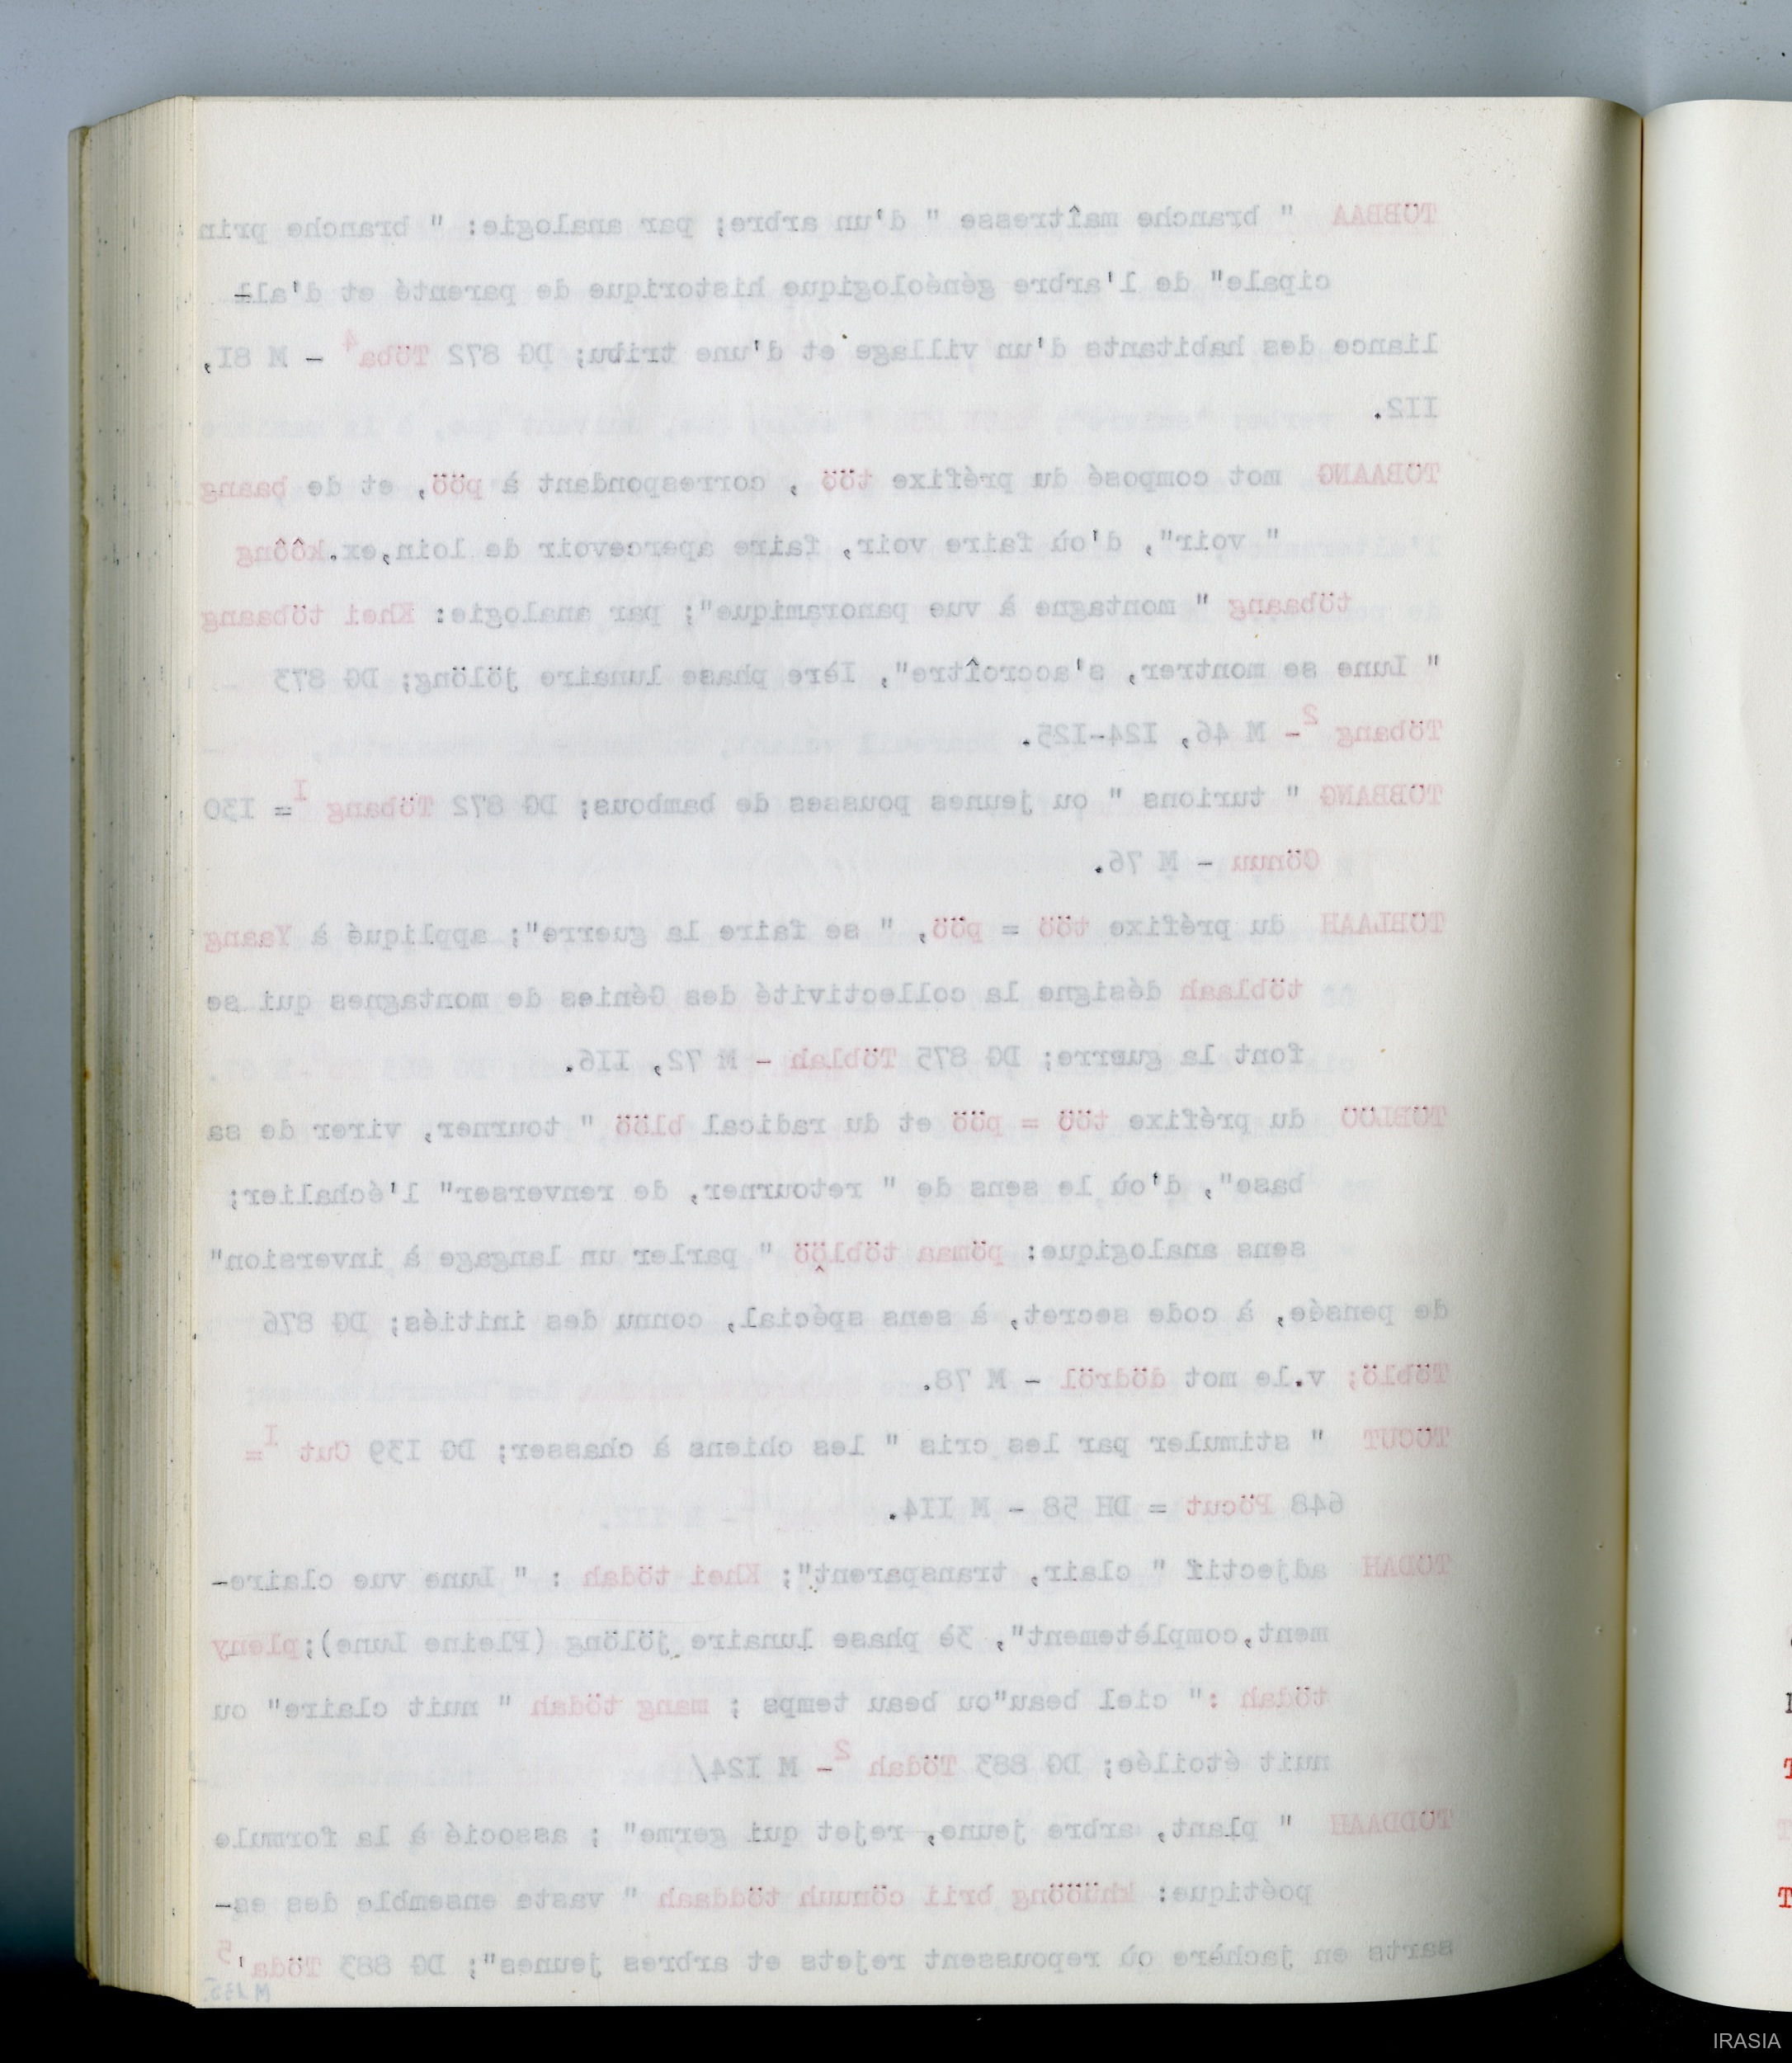 TÖBBAA " branche maîtresse " d'un arbre; par analogie: " branche prin
cipale" de l'arbre généologique historique de parenté et d'all-
liance des habitants d'un village et d'une tribu; DG 872 Töba4 - M 8I,
II2.
TÖBAANG mot composé du préfixe töö , correspondant à pöö, et de baang
" voir", d'où faire voir, faire apercevoir de loin,ex.kôông
töbaang " montagne à vue panoramique"; par analogie: Khei töbaang
" Lune se montrer, s'accroître", Ière phase lunaire jölöng; DG 873
Töbang 2- M 46, I24-I25.
TÖBBANG " turions " ou jeunes pousses de bambous; DG 872 Töbang I= I30
Cönuu - M 76.
TÖBLAAH du préfixe töö = pöö, " se faire la guerre"; appliqué à Yaang
töblaah désigne la collectivité des Génies de montagnes qui se
font la guerre; DG 875 Töblah - M 72, II6.
TÖBLÖÖ du préfixe töö = pöö et du radical blöö " tourner, virer de sa
base", d'où le sens de " retourner, de renverser" l'échalier;
sens analogique: pömaa töblöö " parler un langage à inversion"
de pensée, à code secret, à sens spécial, connu des initiés; DG 876
Töblö; v.le mot dödröl - M 78.
TÖCUT " stimuler par les cris " les chiens à chasser; DG I39 Cut I=
648 Pöcut = DH 58 - M II4.
TÖDAH adjectif " clair, transparent"; Khei tödah : " Lune vue claire-
ment,complètement", 3è phase lunaire jölöng (Pleine Lune);pleny
tödah :" ciel beau"ou beau temps ; mang tödah " nuit claire" ou
nuit étoilée; DG 883 Tödah 2- M I24/
TÖDDAAH " plant, arbre jeune, rejet qui germe" ; associé à la formule
poétique: khüööng brii cönuuh töddaah " vaste ensemble des es-
sarts en jachère où repoussent rejets et arbres jeunes"; DG 883 Töda'5
IRASIA